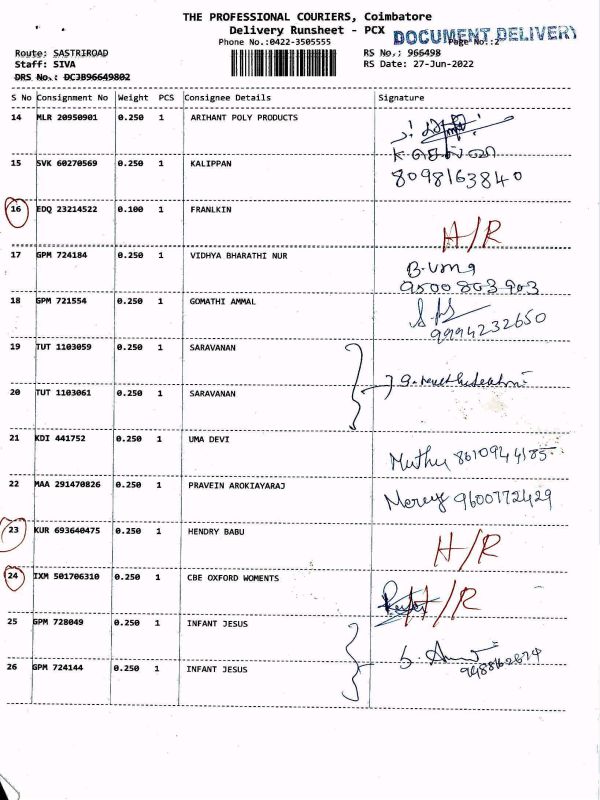 THE PROFESSIONAL COURIERS, Coimbatore
Delivery Runsheet - PCX
DOCUMENT DELIVERY
Phone No.:0422-3505555
Page No.:2
Route: SASTRIROAD
RS No.: 966498
Staff: SIVA
RS Date: 27-Jun-2022
DRS No.: DCJB96649802
S No Consignment No Weight PCS Consignee Details Signature
14 MLR 20950901 0.250 1 ARIHANT POLY PRODUCTS
15 SVK 60270569 0.250 1 KALIPPAN 8098163840
16 EDQ 23214522 0.100 1 FRANLKIN H/R
17 GPM 724184 0.250 1 VIDHYA BHARATHI NUR B. Uma
9500803903
18 GPM 721554 0.250 1 GOMATHI AMMAL
9994232650
19 TUT 1103059 0.250 1 SARAVANAN
20 TUT 1103061 0.250 1 SARAVANAN
21 KDI 441752 0.250 1 UMA DEVI Muthu 8610944185
22 MAA 291470826 0.250 1 PRAVEIN AROKIAYARAJ Mercy 9600772429
23 KUR 693640475 0.250 1 HENDRY BABU H/R
24 IXM 501706310 0.250 1 CBE OXFORD WOMENTS H/R
25 GPM 728049 0.250 1 INFANT JESUS
26 GPM 724144 0.250 1 INFANT JESUS